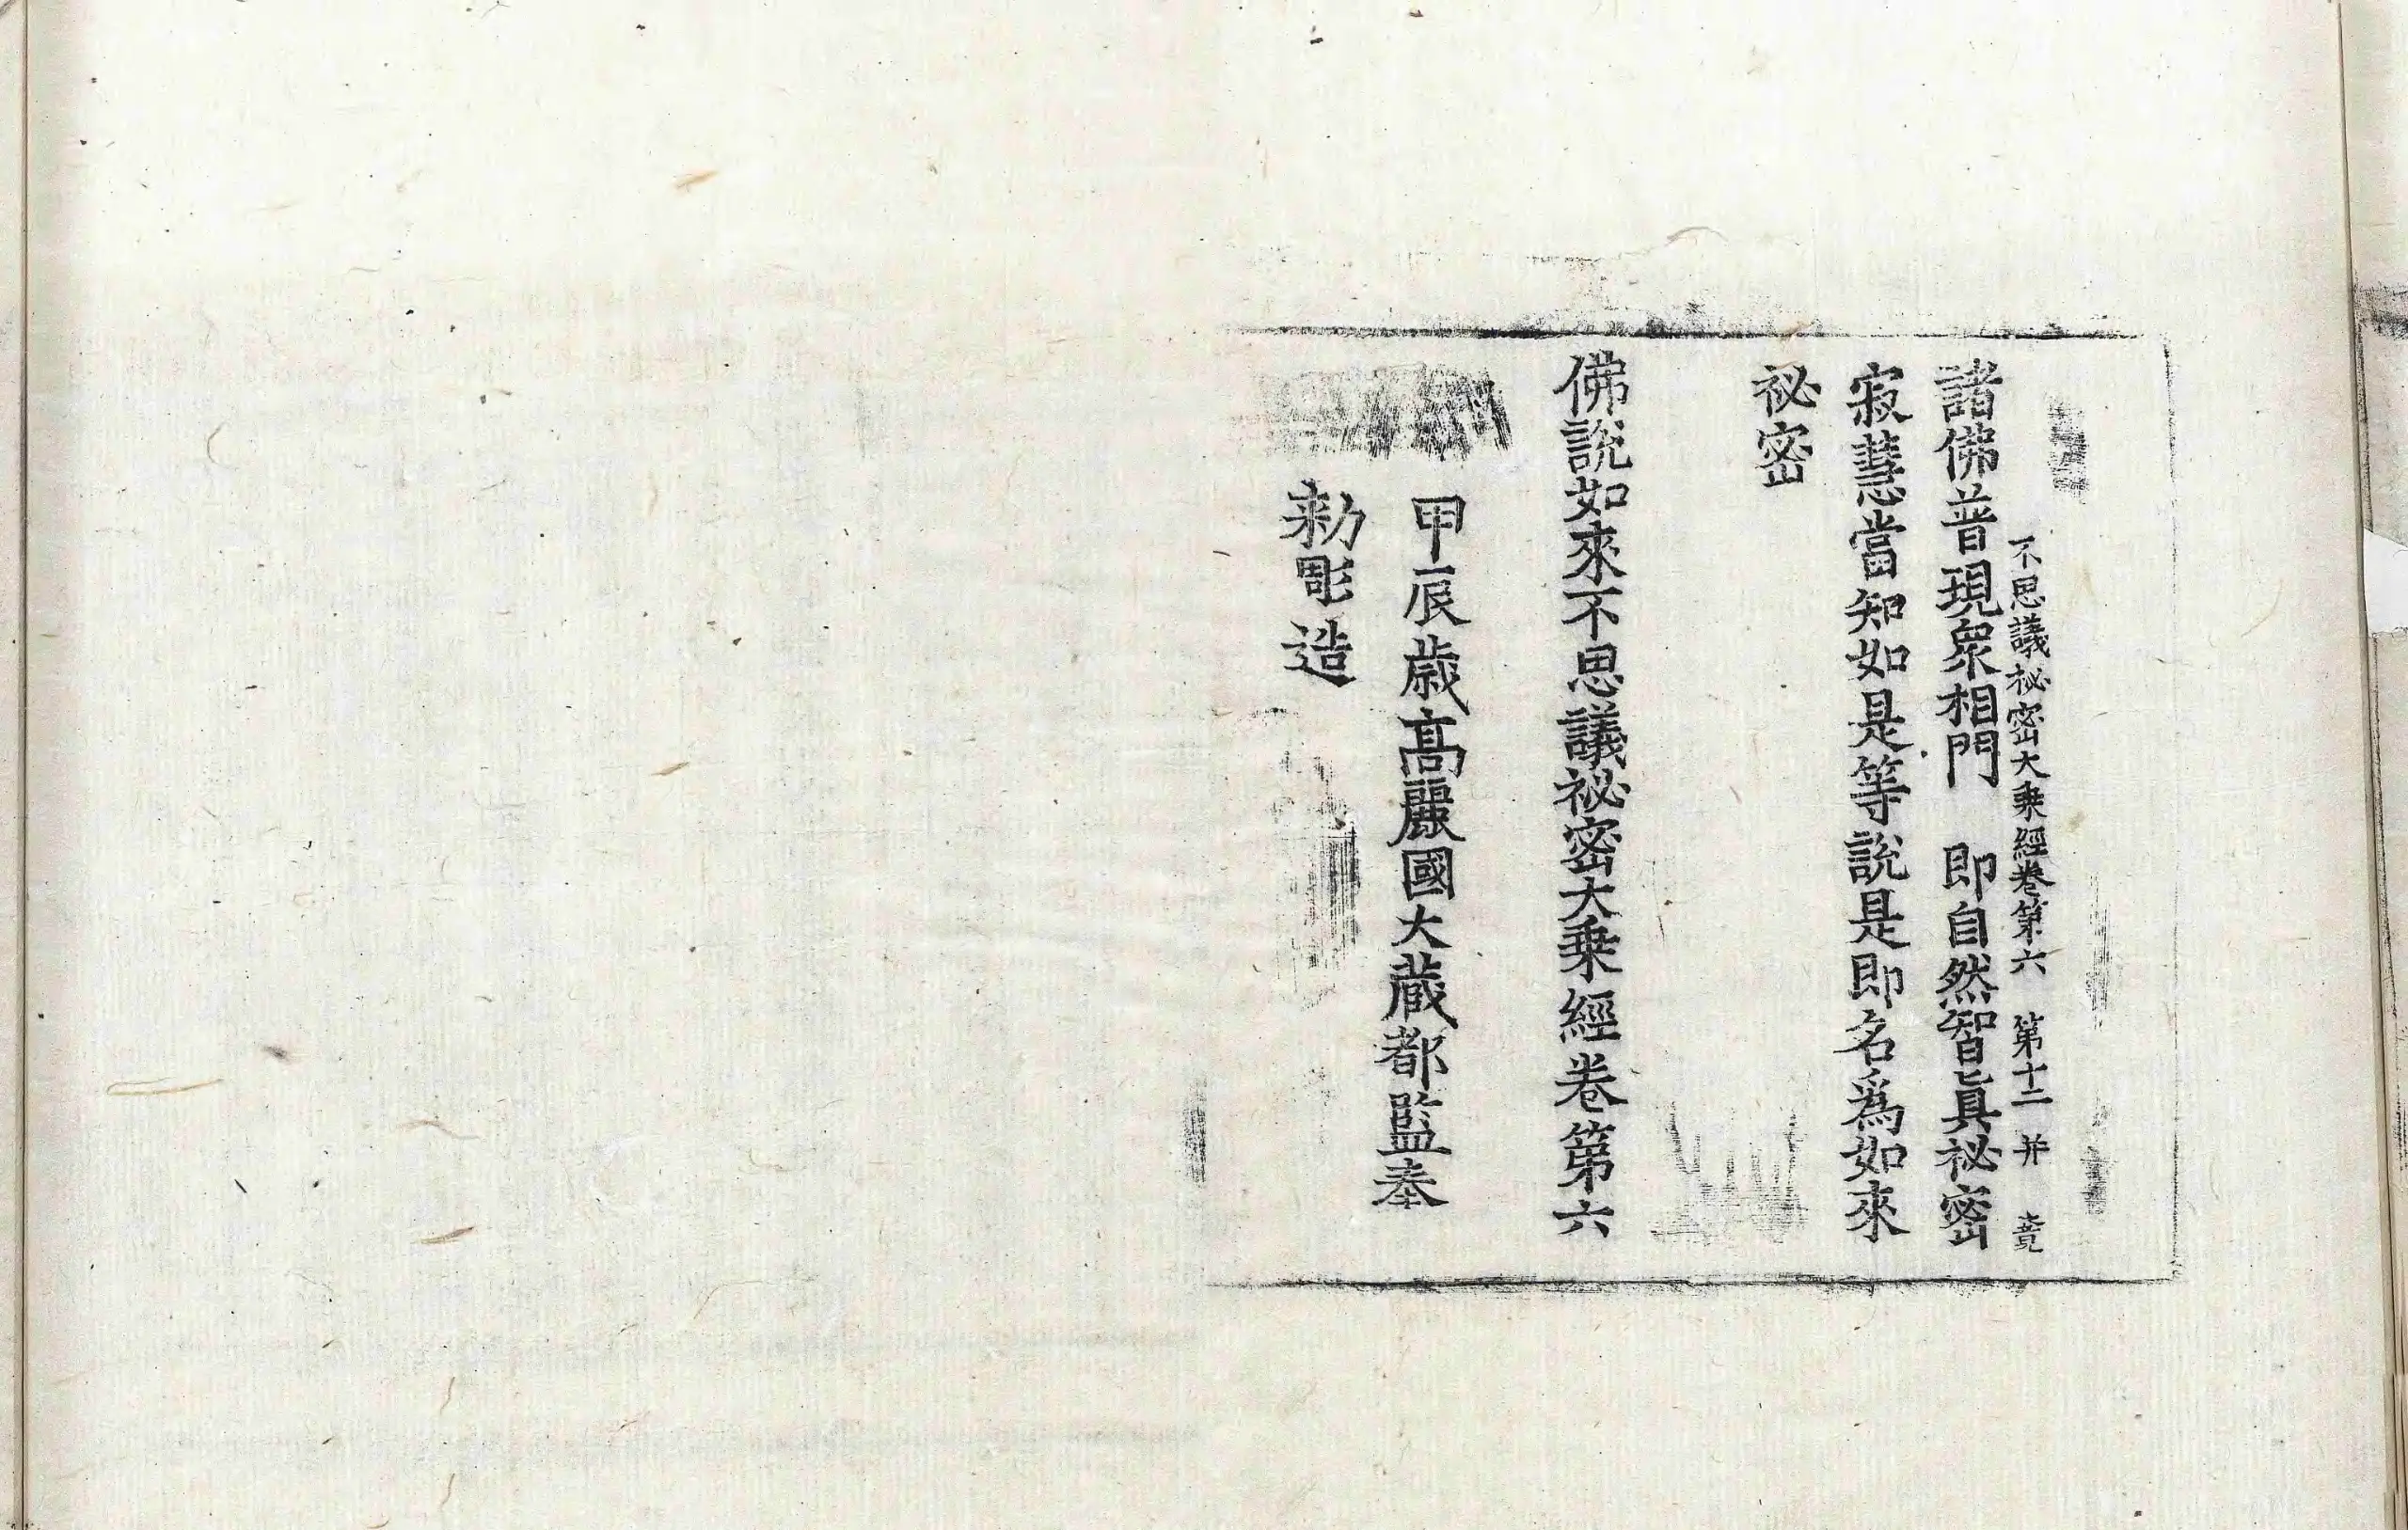 不思議祕密大乘經卷第六 第十二 并
諸佛普現衆相門 即自然智真祕密
寂慧當知如是等說是即名爲如來
祕密
佛說如來不思議祕密大乗經卷第六
甲辰歳髙麗國大蔵都監奉
勑彫造